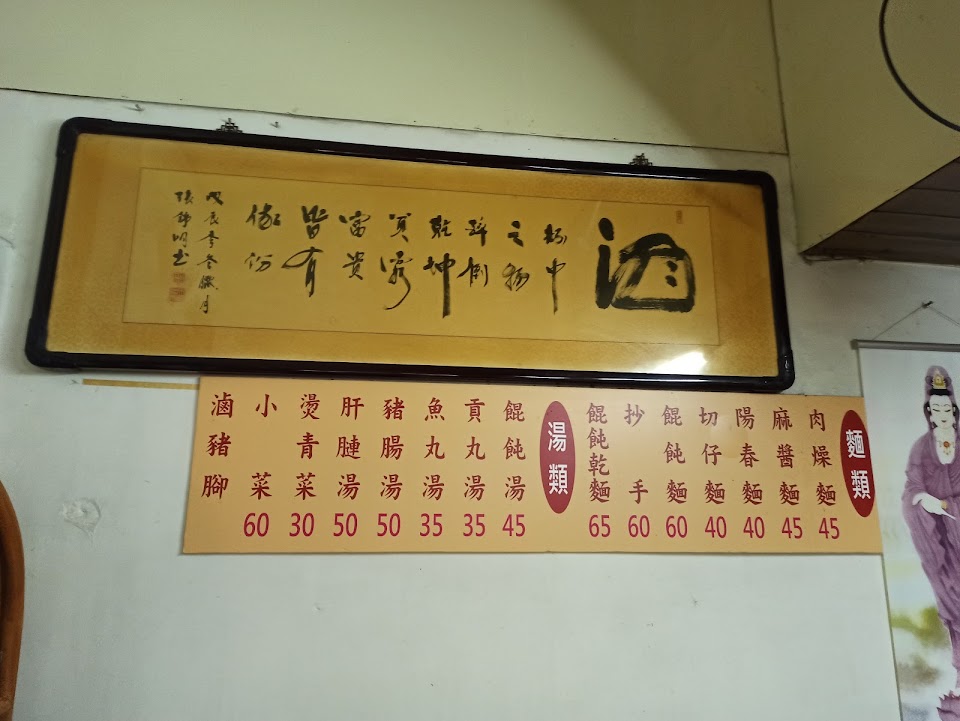 酒
杯中
之物
醉倒
乾坤
貧窮
富貴
皆有
份
戊辰季冬臘月
麵類
肉燥麵45
麻醬麵45
陽春麵40
切仔麵40
餛飩麵60
抄手60
餛飩乾麵65
湯類
餛飩湯45
貢丸湯35
魚丸湯35
豬腸湯50
肝腱湯50
燙青菜30
小菜60
滷豬腳